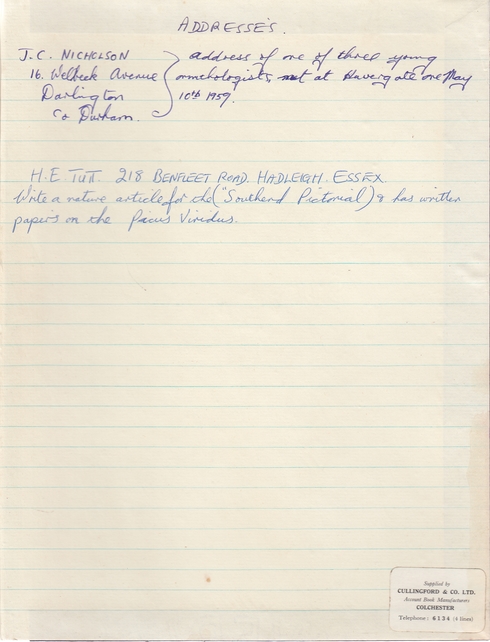 ADDRESSES.
J.C. NICHOLSON
16. Welbeck Avenue
Darlington
Co Durham.
address of one of three young
ornithologists, met at Havergate one May
10th 1959.
H.E. TUTT. 218 BENFLEET ROAD. HADLEIGH. ESSEX.
Write a nature article for the ("Southend Pictorial) & has written
papers on the Picus Viridus.
Supplied by
CULLINGFORD & CO. LTD.
Account Book Manufacturers
COLCHESTER
Telephone: 6134 (4 lines)